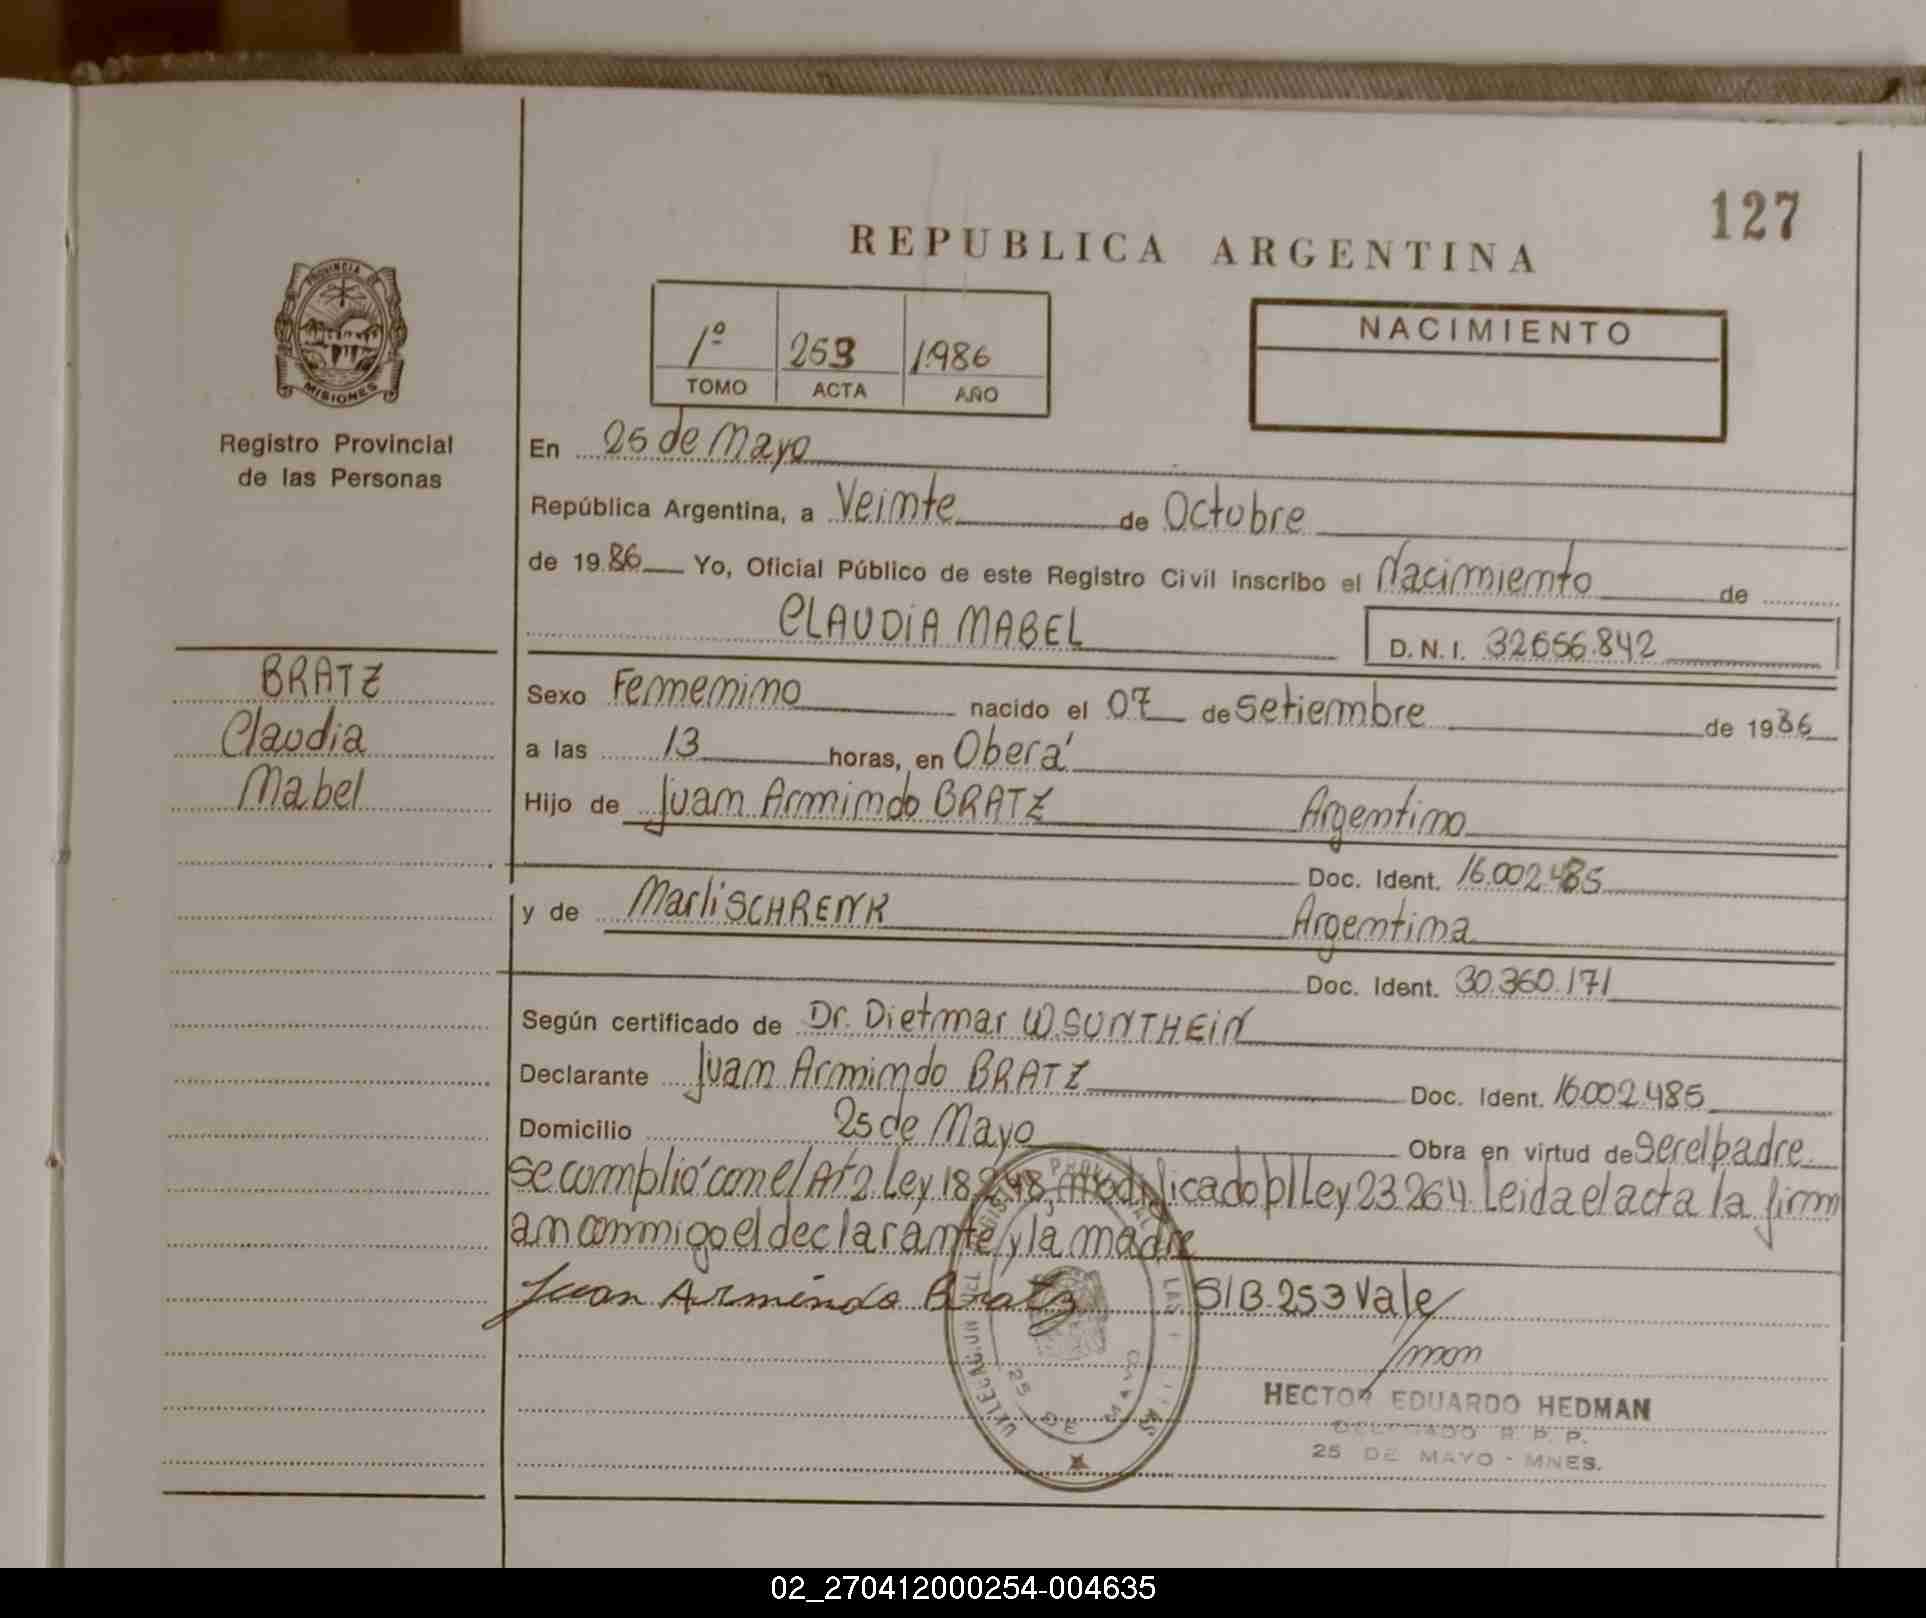 127
REPUBLICA ARGENTINA
PROVINCIA DE
MISIONES
Registro Provincial
de las Personas
1º 253 1.986
TOMO ACTA AÑO
NACIMIENTO
En 25 de Mayo
República Argentina, a Veinte de Octubre
de 1986 Yo, Oficial Público de este Registro Civil inscribo el Nacimiento de
CLAUDIA MABEL D.N.I. 32.656.842
BRATZ
Claudia
Mabel
Sexo Femenino nacido el 07 de Setiembre de 1986
a las 13 horas, en Oberá
Hijo de Juan Armindo BRATZ Argentino
Doc. Ident. 16.002.485
y de Marli SCHRENK Argentina
Doc. Ident. 30.360.171
Según certificado de Dr. Dietmar W. SUNTHEIN
Declarante Juan Armindo BRATZ Doc. Ident. 16.002.485
Domicilio 25 de Mayo Obra en virtud de ser el padre
se cumplió con el Art 2 Ley 18.248, modificado p/ Ley 23.264. Leida el acta la firm
an conmigo el declarante y la madre
Juan Armindo Bratz S/B. 253 Vale
HECTOR EDUARDO HEDMAN
DELEGADO R. P. P.
25 DE MAYO - MNES.
02_270412000254-004635